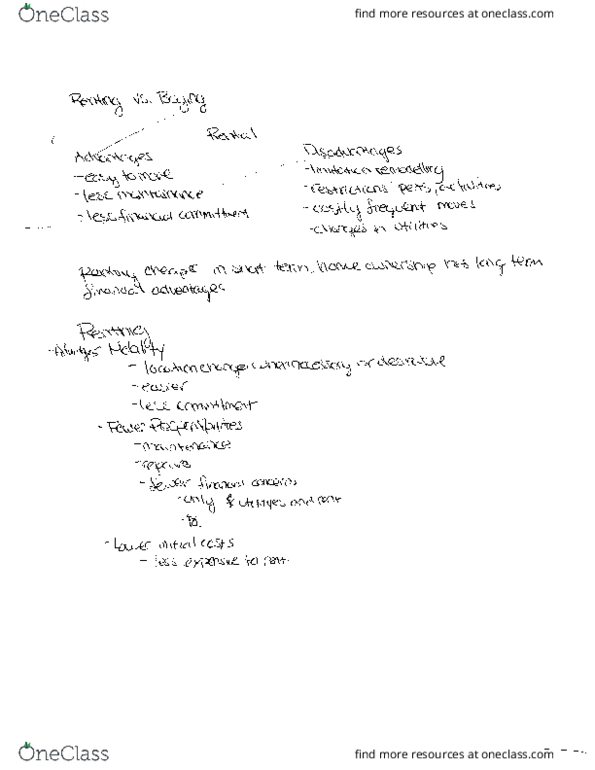 OneClass
find more resources at oneclass.com
Renting vs. Buying
Rental
Advantages
- easy to move
- less maintainance
- less financial committment
Disadvantages
- limitation remodelling
- restrictions pets, activities
- costly frequent moves
- changes in utilities
Renting cheaper in short term, home ownership has long term
financial advantages
Renting
Mobility
- location change when necessary or desirable
- easier
- less committment
- Fewer Responsibilities
- maintenance
- repairs
- fewer financial concerns
- only $ utilities and rent
- Lower initial costs
- less expensive to rent.
OneClass
find more resources at oneclass.com